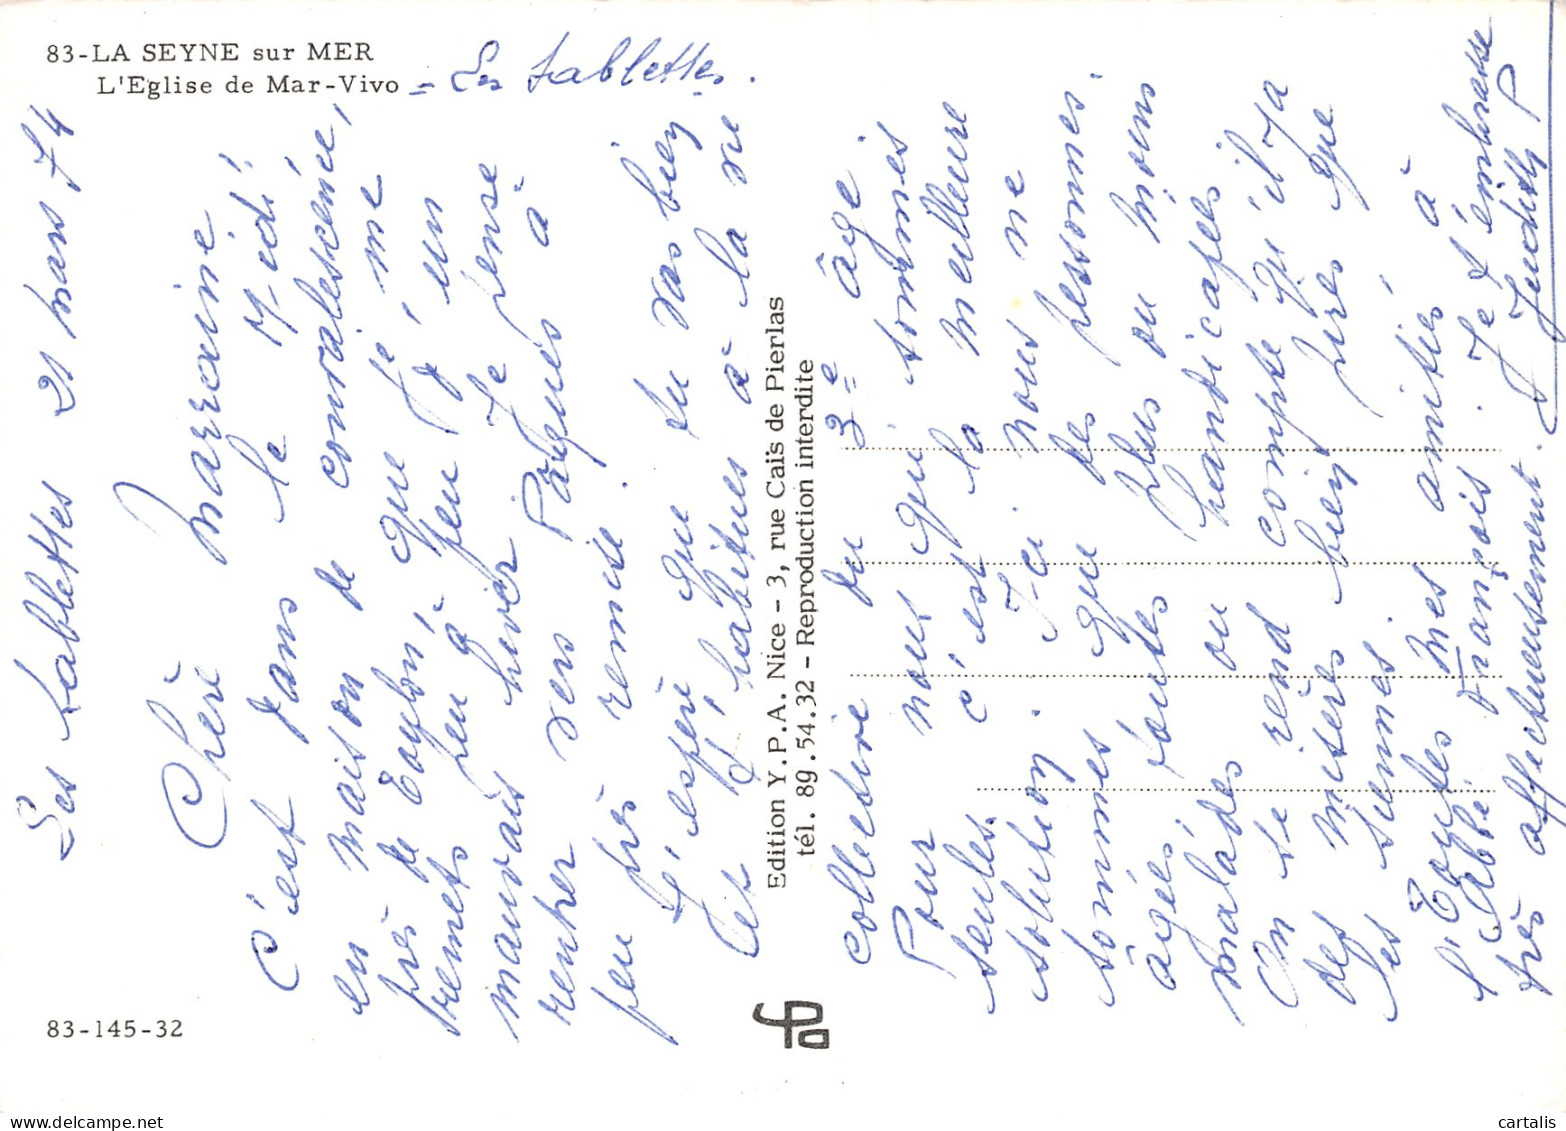 83-LA SEYNE sur MER
L'Eglise de Mar-Vivo = Les Sablettes.
Les Sablettes 21 mars 74
Chère Marraine
C'est dans le Midi
en maison de convalescence,
près de Toulon, que je me
remets peu à peu d'un
mauvais hiver. Je pense
rentrer vers Pâques à
peu près remise.
J'espère que tu vas bien
et t'habitues à la vie
collective du 3e âge
Pour nous qui sommes
seules c'est la meilleure
solution. Ici nous ne
sommes que des personnes
âgées toutes plus ou moins
malades ou handicapées
On se rend compte qu'il y a
des misères bien pires que
les siennes.
Toutes mes amitiés à
l'Abbé François. Je t'embrasse
très affectueusement. Judith P
Edition Y.P.A. Nice - 3, rue Caïs de Pierlas
tél. 89.54.32 - Reproduction interdite
83-145-32
ypa
www.delcampe.net
cartalis